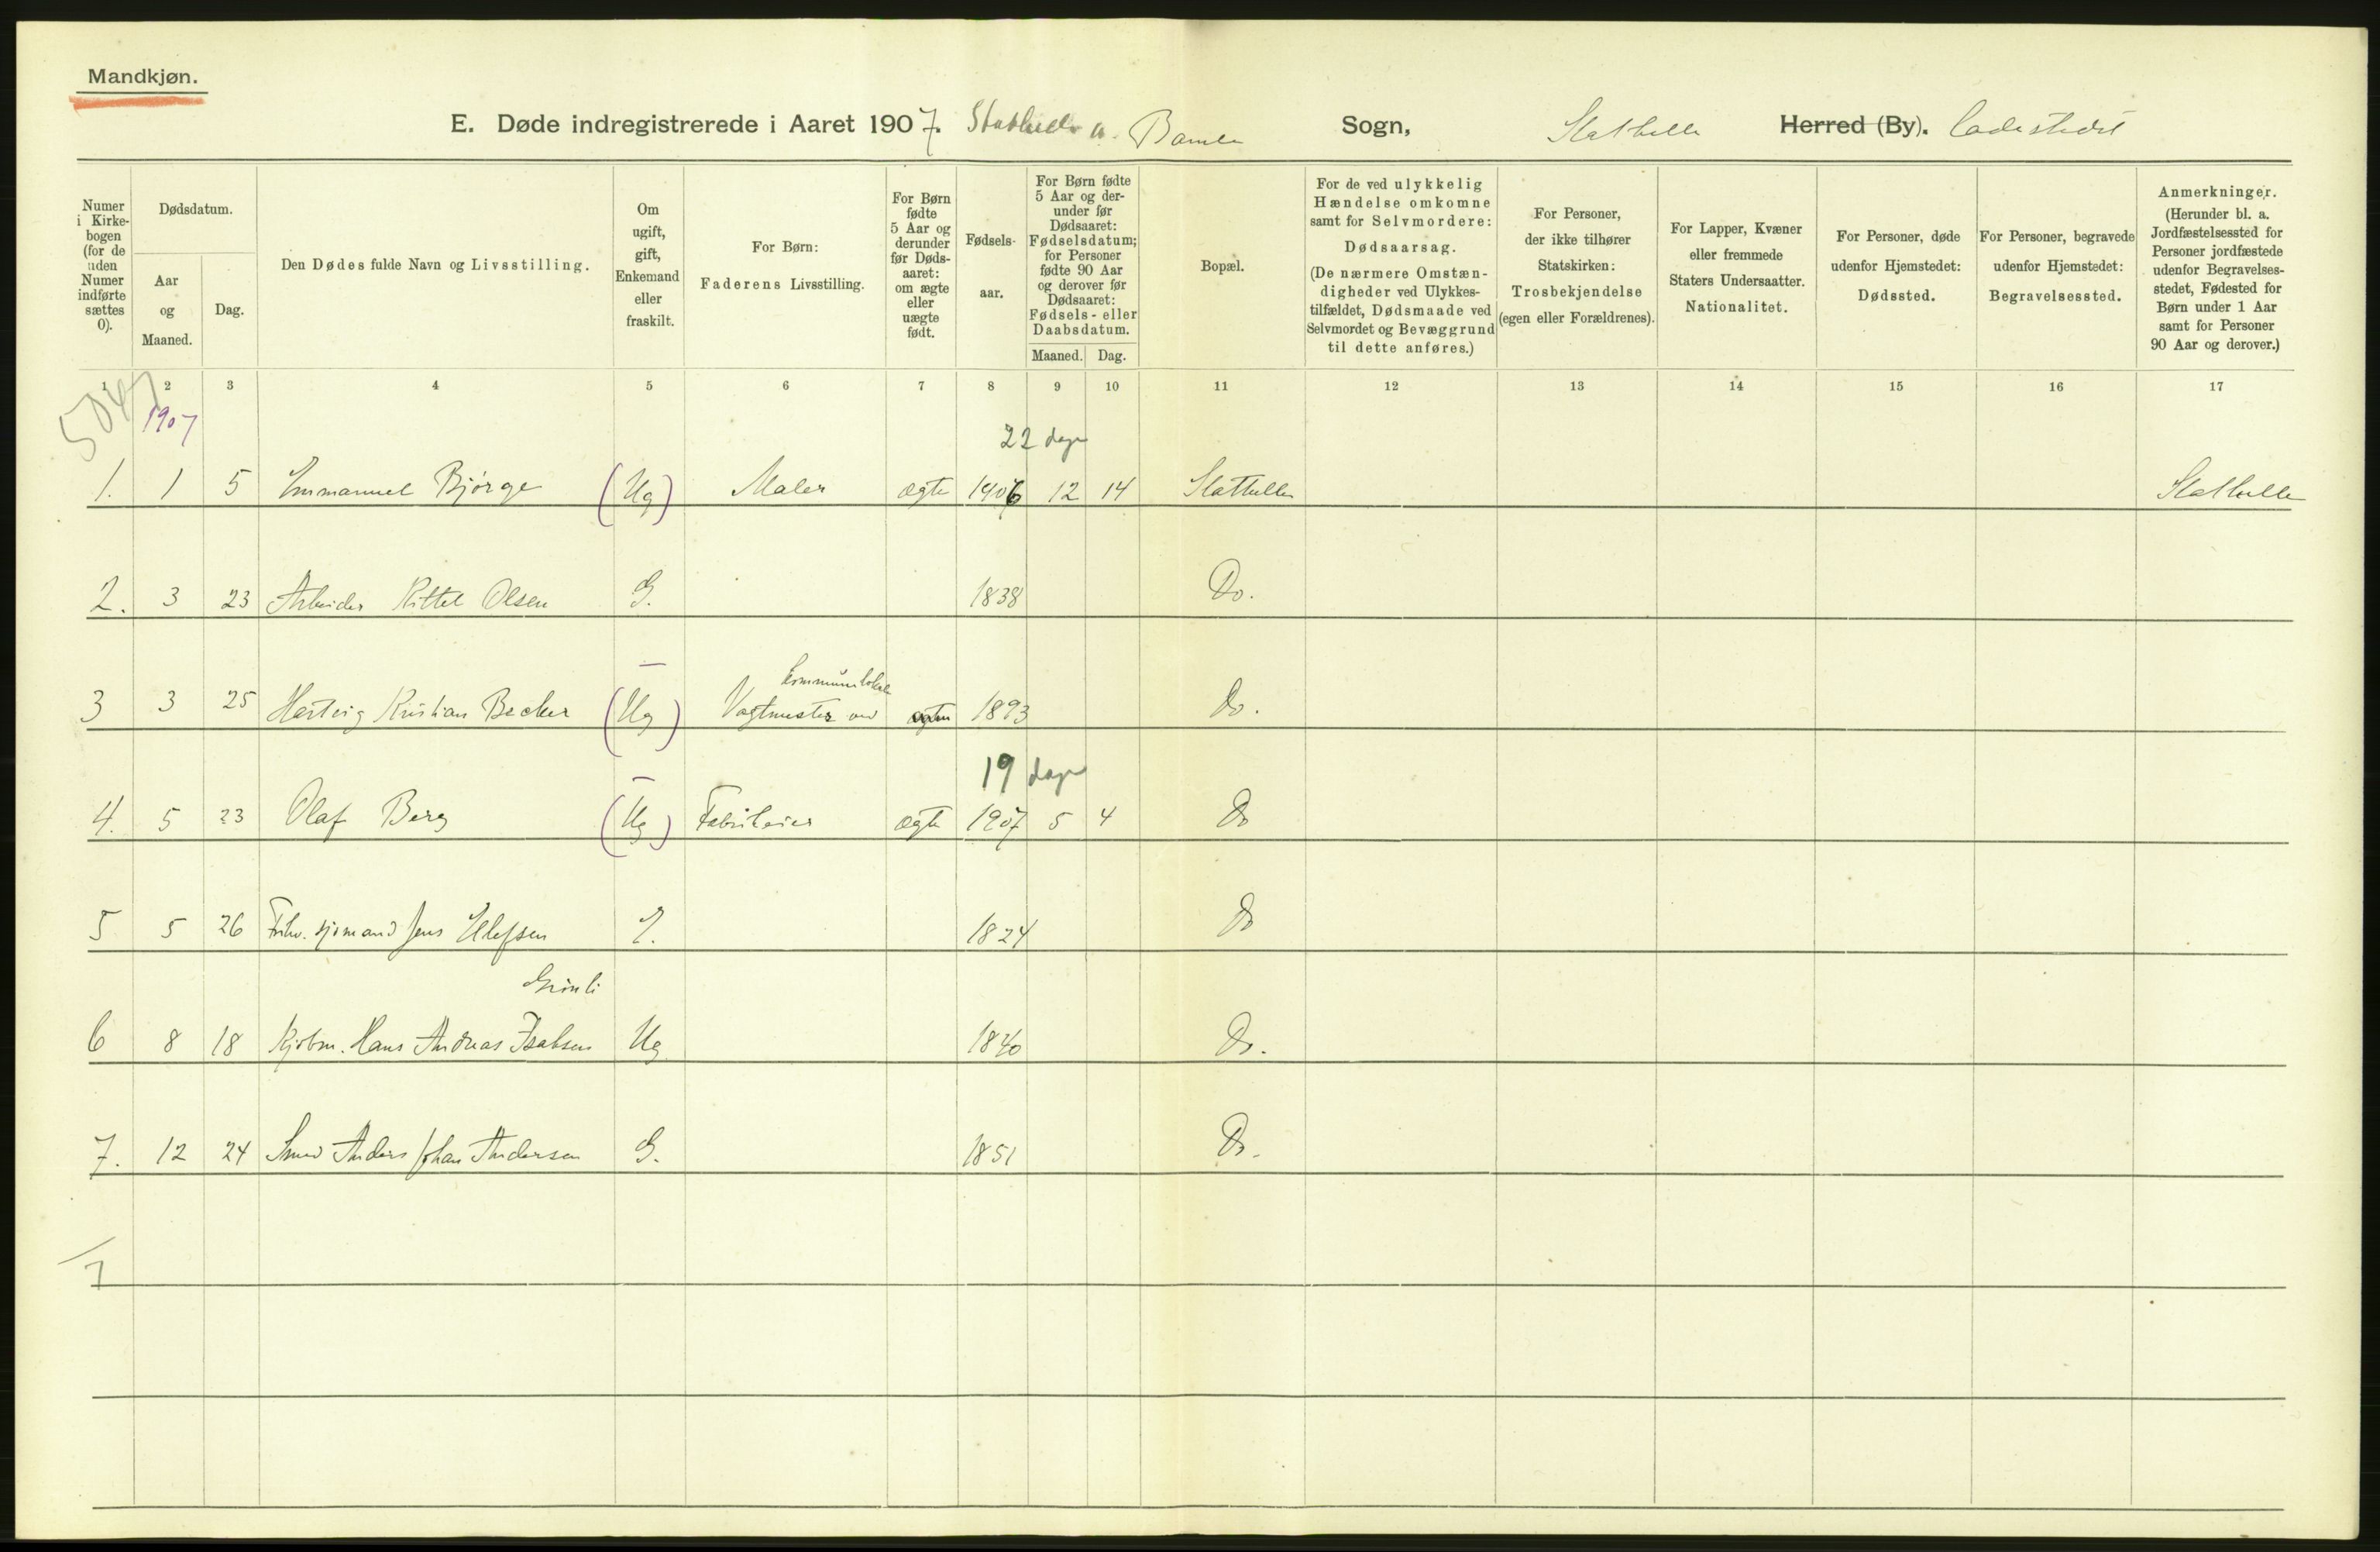 Mandkjøn.
E. Døde indregistrerede i Aaret 1907. Stathelle a. Bamle Sogn, Stathelle Herred (By). Ladestedet
Numer i Kirke- bogen (for de uden Numer indførte sættes 0).
Dødsdatum.
Aar og Maaned.
Dag.
Den Dødes fulde Navn og Livsstilling.
Om ugift, gift, Enkemand eller fraskilt.
For Børn: Faderens Livsstilling.
For Børn fødte 5 Aar og derunder før Døds- aaret: om ægte eller uægte født.
Fødsels- aar.
For Børn fødte 5 Aar og der- under før Dødsaaret: Fødselsdatum; for Personer fødte 90 Aar og derover før Dødsaaret: Fødsels- eller Daabsdatum.
Maaned. Dag.
Bopæl.
For de ved ulykkelig Hændelse omkomne samt for Selvmordere: Dødsaarsag. (De nærmere Omstæn- digheder ved Ulykkes- tilfældet, Dødsmaade ved Selvmordet og Bevæggrund til dette anføres.)
For Personer, der ikke tilhører Statskirken: Trosbekjendelse (egen eller Forældrenes).
For Lapper, Kvæner eller fremmede Staters Undersaatter. Nationalitet.
For Personer, døde udenfor Hjemstedet: Dødssted.
For Personer, begravede udenfor Hjemstedet: Begravelsessted.
Anmerkninger. (Herunder bl. a. Jordfæstelsessted for Personer jordfæstede udenfor Begravelses- stedet, Fødested for Børn under 1 Aar samt for Personer 90 Aar og derover.)
1 2 3 4 5 6 7 8 9 10 11 12 13 14 15 16 17
5047
1907
22 dage
1. 1 5 Emmanuel Bjørge (Ug) Maler ægte 1906 12 14 Stathelle Stathelle
2. 3 23 Arbeider Kittel Olsen G. 1838 Do.
kommunelokale
3 3 25 Hartvig Kristian Becker (Ug) Vagtmester ved ægte 1893 Do.
19 dage
4. 5 23 Olaf Berg (Ug) Fabrikeier ægte 1907 5 4 Do
5 5 26 Frhv. sjømand Jens Ellefsen E. 1824 Do
Grønli
6 8 18 Kjøbm. Hans Andreas Isaksen Ug 1840 Do.
7. 12 24 Smed Anders Johan Andersen G. 1851 Do.
7